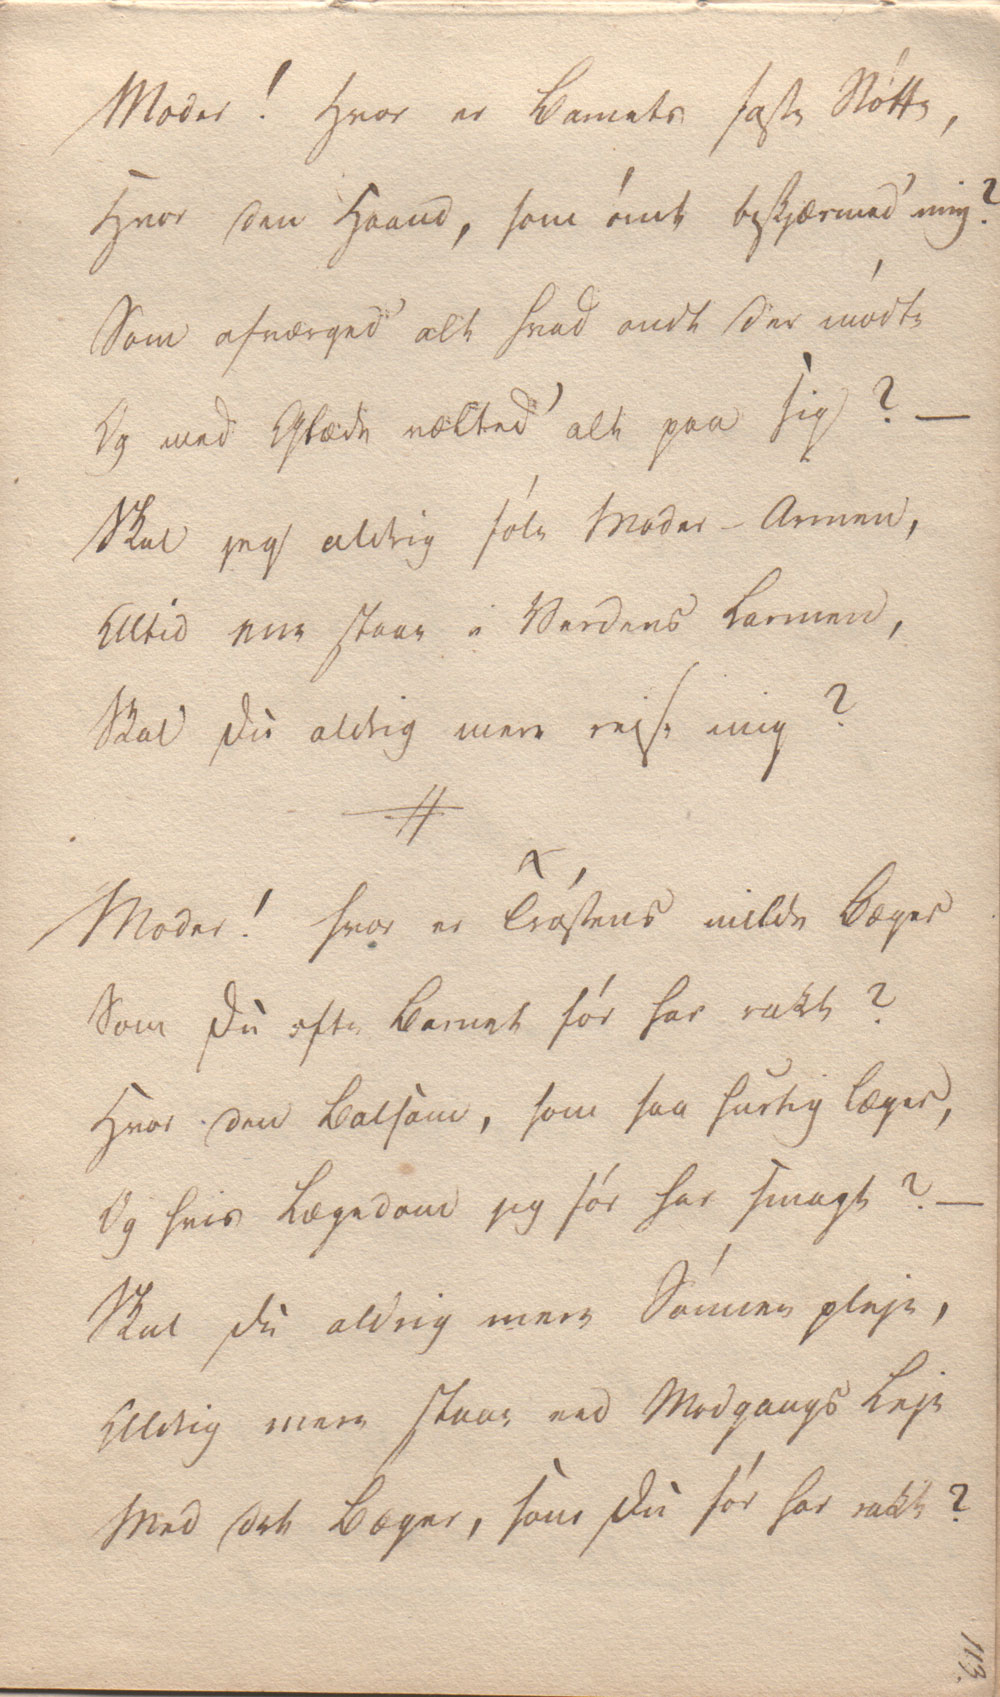 Moder! Hvor er Barnets faste Støtte,
Hvor den Haand, som ømt beskjærmed' mig?
Som afværged' alt hvad ondt der mødte
Og med Glæde vælted' alt paa sig? —
Skal jeg aldrig føle Moder-Armen,
Altid ene staae i Verdens Larmen,
Skal Du aldrig mere rejse mig?
Moder! hvor er Trøstens milde Bæger
Som Du ofte Barnet før har rakt?
Hvor den Balsam, som saa hurtig læger,
Og hvis Lægedom jeg før har smagt? —
Skal Du aldrig mere Sønnen pleje,
Aldrig mere staae ved Modgangs Leje
Med det Bæger, som Du før har rakt?
113.